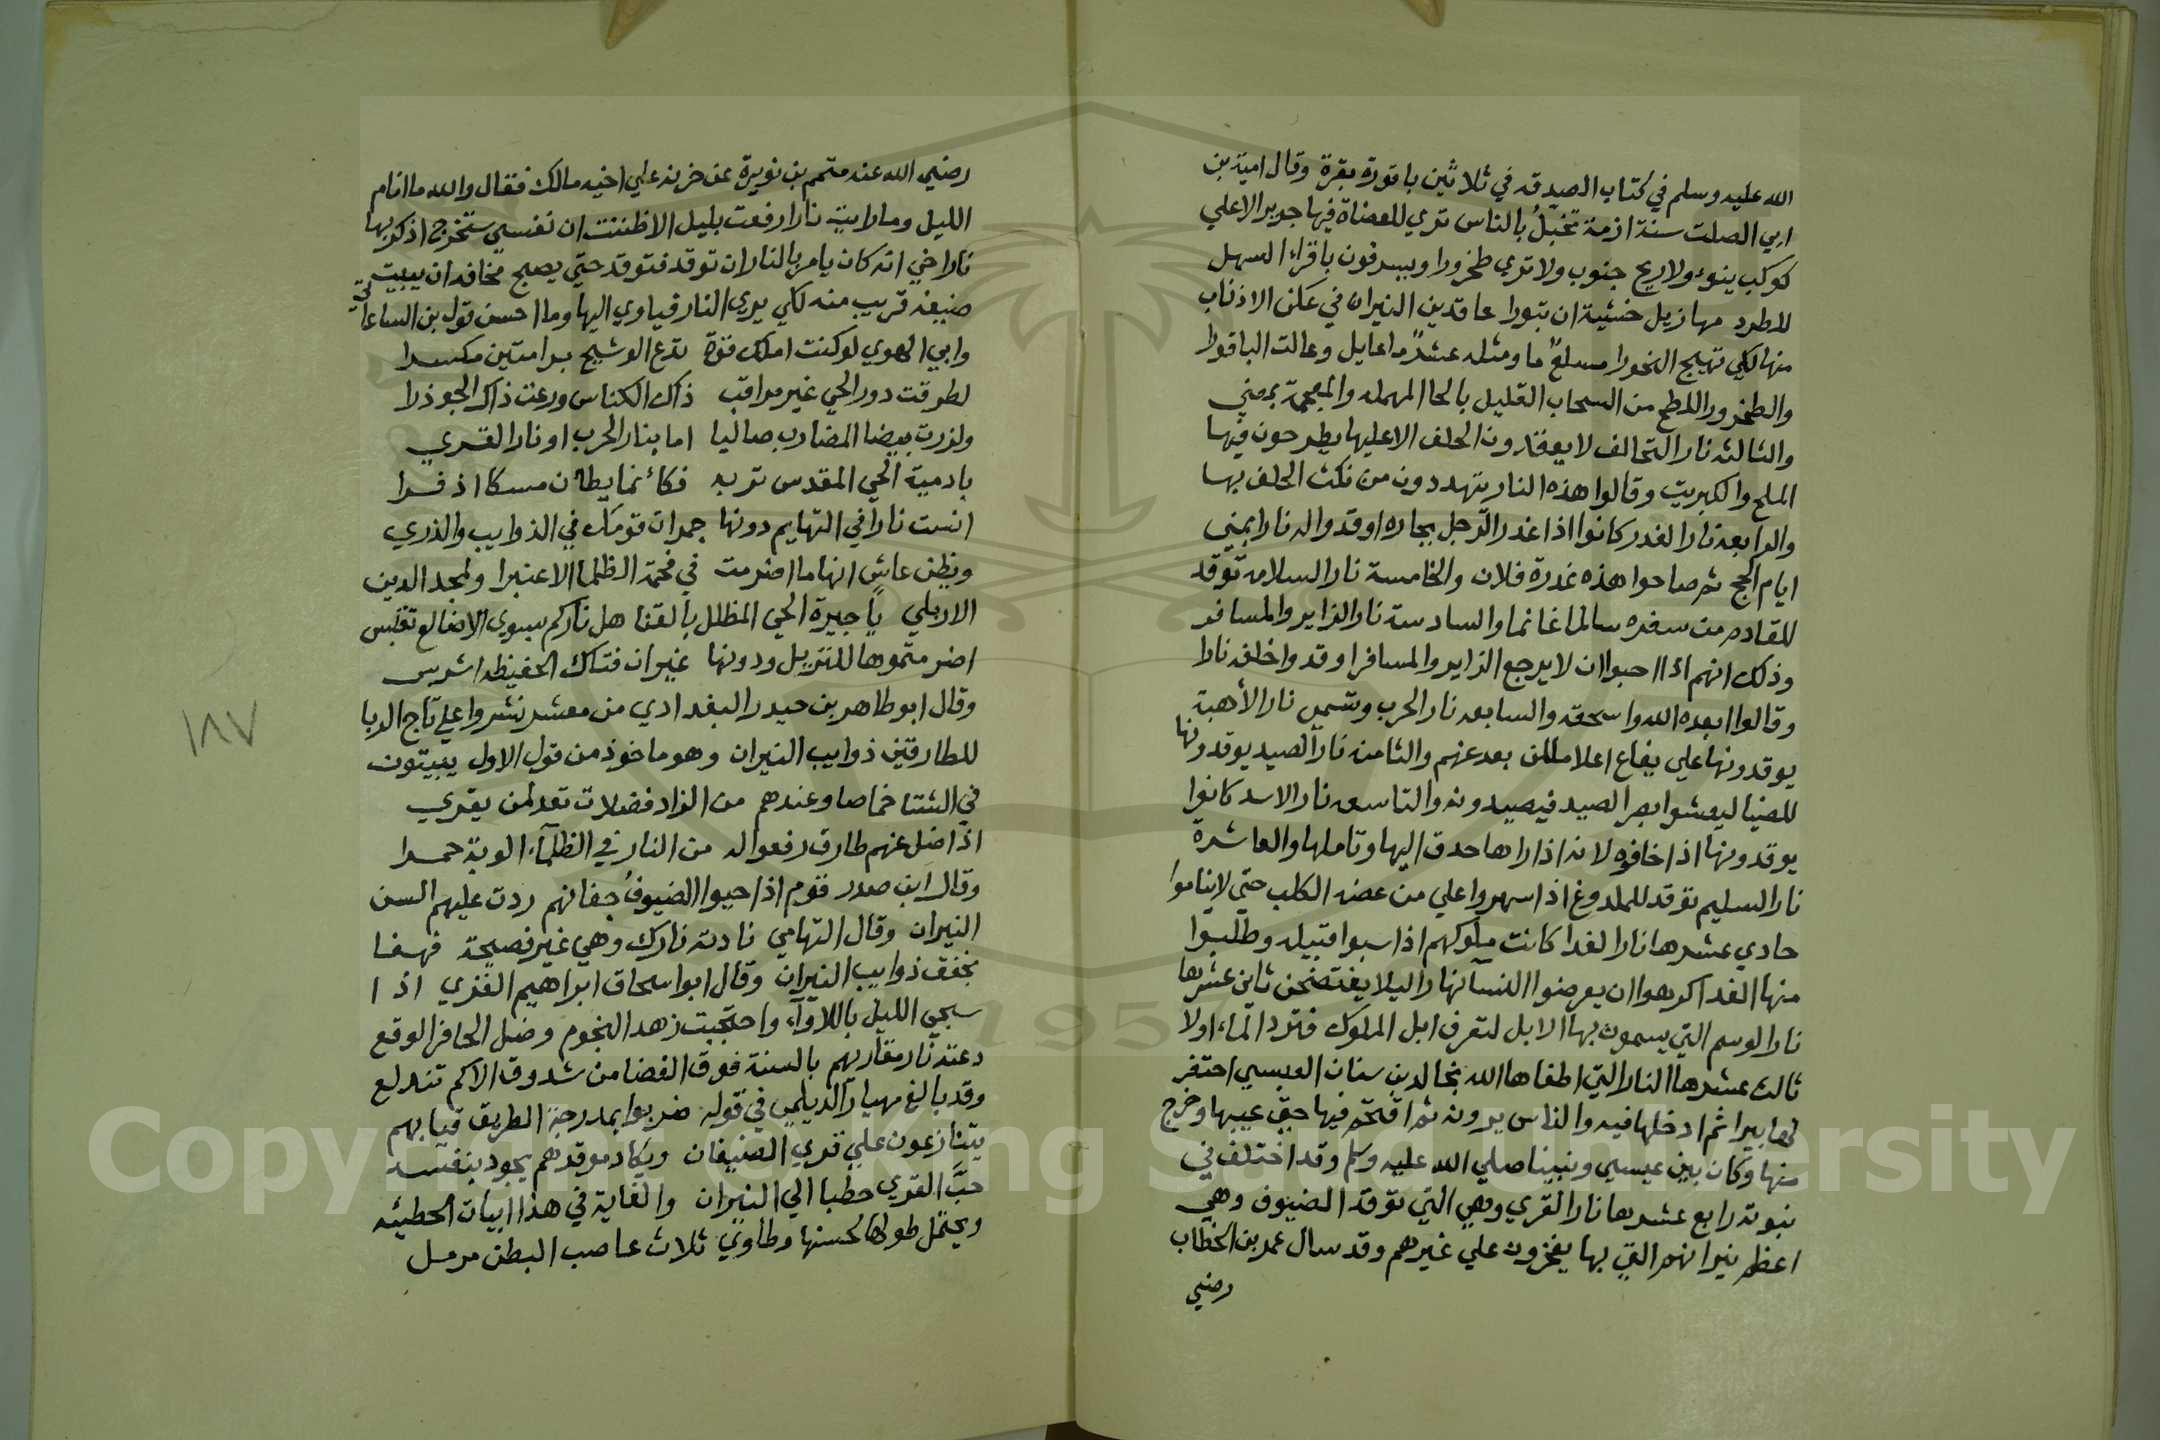 الله عليه وسلم في كتاب الصدقه في ثلاثين باقورة بقرة وقال امية بن
ابي الصلت سنة ازمة تخبل بالناس تري للعضاة فيها جريرا لا علي
كوكب ينوء ولا ريح جنوب ولا تري طخرورا ويسرفون باقراء السهل
للطرد مهازيل خشية ان تبورا عاقدين النيران في عكن الاذناب
منها لكي تهيج البحورا مسلع ما ومثله عشر ما عايل وعالت الباقورا
والطخرور اللطح من السحاب القليل بالحا المهمله والمعجمة بمعني
والثالثه نار التحالف لا يعقدون الحلف الا عليها يطرحون فيها
الملح والكبريت وقالوا هذه النار تتهددون من نكث الحلف بها
والرابعة نار الغدر كانوا اذا غدر الرجل بجاره اوقدوا له نارا بمني
ايام الحج ثم صاحوا هذه غدرة فلان والخامسة نار السلامة توقد
للقادم من سفره سالما غانما والسادسة نار الزاير والمسافر
وذلك انهم اذا احبوا ان لا يرجع الزاير والمسافر اوقدوا خلفه نارا
وقالوا ابعده الله واسحقه والسابعه نار الحرب وتسمي نار الأهبة
يوقدونها علي يفاع اعلاما لمن بعد عنهم والثامنه نار الصيد يوقدونها
للضيا ليعشوا بصر الصيد فيصيدونه والتاسعه نار الاسد كانوا
يوقدونها اذا خافوه لانه اذا راها حدق اليها وتاملها والعاشرة
نار السليم توقد للملدوغ اذا سهروا علي من عضه الكلب حتي لا يناموا
حادي عشرها نار الفدا كانت ملوكهم اذا سبوا قبيله وطلبوا
منها الفدا كرهوا ان يعرضوا النسا نهارا ليلا يفتضحن ثاني عشرها
نار الوسم التي يسمون بها الابل لتعرف ابل الملوك فترد الماء اولا
ثالث عشرها النار التي اطفاها الله بخالد بن سنان العبسي احتفر
لها بيرا ثم ادخلها فيه والناس يرونه ثم اقتحم فيها حتي غيبها وخرج
منها وكان بين عيسي ونبينا صلي الله عليه وسلم وقد اختلف في
نبوته رابع عشرها نار القري وهي التي توقد الضيوف وهي
اعظم نيرانهم التي بها يفخرون علي غيرهم وقد سال عمر بن الخطاب
رضي
رضي الله عنه متمم بن نويرة عن حزنه علي اخيه مالك فقال والله ما انام
الليل وما رايت نارا رفعت بليل الا ظننت ان نفسي ستخرج اذكر بها
نار اخي انه كان يامر بالنار ان توقد فتوقد حتي يصبح مخافة ان يبيت
ضيفه قريب منه لكي يري النار فياوي اليها وما احسن قول بن الساعاتي
وابي الهوي لو كنت املك قوة تدع الوشيج برامتين مكسرا
لطرقت دور الحي غير مراقب ذاك الكناس ورعت ذاك الجوذرا
ولزرت بيضا المضارب صاليا اما بنار الحرب او نار القري
بادمية الحي المقدس تربه فكأنما يطان مسكا اذفرا
انست نارا في التهايم دونها جمران قومك في الذوايب والذري
ويظن عاش انها ما اضرمت في فحمة الظلما الا عنبرا ولمجد الدين
الاربلي يا جيرة الحي المظلل بالقنا هل ناركم بسوي الاضالع تقتبس
اضرمتموها للنزيل ودونها غيران فتاك الحفيظه اشرس
وقال ابو طاهر بن حيدر البغدادي من معشر نشروا علي تاج الربا
للطارقين ذوايب النيران وهو ماخوذ من قول الاول يبيتون
في الشتا خماصا وعندهم من الزاد فضلات تعد لمن يقري
اذا ضل عنهم طارق رفعوا له من النار في الظلماء الوية حمرا
وقال ابن صدر قوم اذا حيوا الضيوف جفانهم ردت عليهم السن
النيران وقال التهامي نادته نارك وهي غير فصيحة فهفا
بخفق ذوايب النيران وقال ابو اسحاق ابراهيم الغزي اذا
سجي الليل باللاواء واحتجبت زهد النجوم وضل الحافر الوقع
دعته نار مقاريهم بالسنة فوق الفضا من شدوق الاكم تندلع
وقد بالغ مهيار الديلمي في قوله ضربوا بمدرجة الطريق قبابهم
يتنازعون علي قري الضيفان ويكاد موقدهم يجود بنفسه
حب القري حطبا الي النيران والغاية في هذا ابيات الحطيئه
ويحتمل طولها لحسنها وطاوي ثلاث عاصب البطن مرمل
١٨٧
Copyright © King Saud University
1957